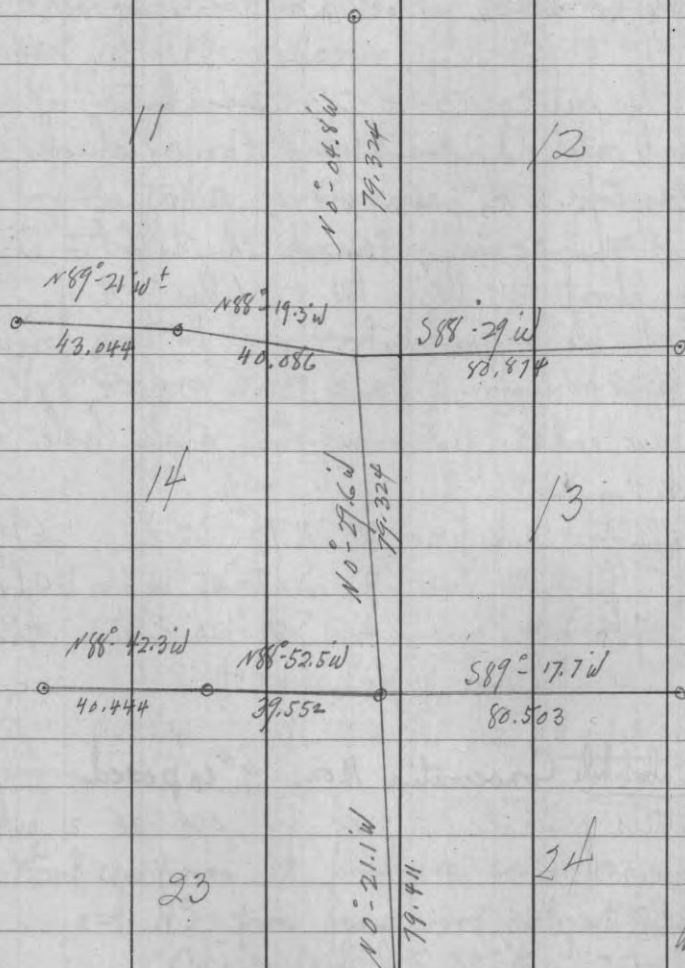 11
12
N 0°-04.8' W
79.324
N89°-21' W ±
43.044
N88°-19.3' W
40.086
S88°-29' W
80.874
14
13
N 0°-29.6' W
79.324
N88°-42.3' W
40.444
N88°-52.5' W
39.552
S89°-17.7' W
80.503
23
24
N 0°-21.1' W
79.411